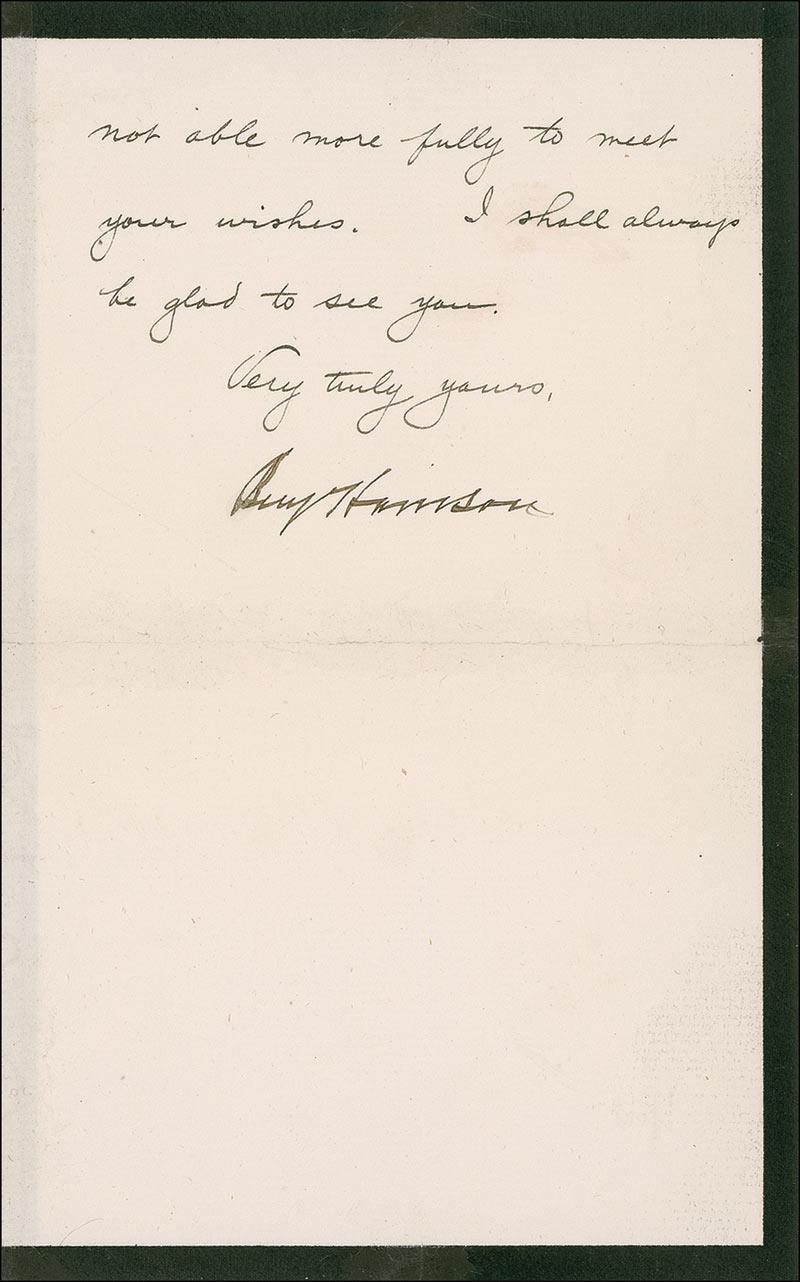 not able more fully to meet
your wishes. I shall always
be glad to see you.
Very truly yours,
Benj Harrison